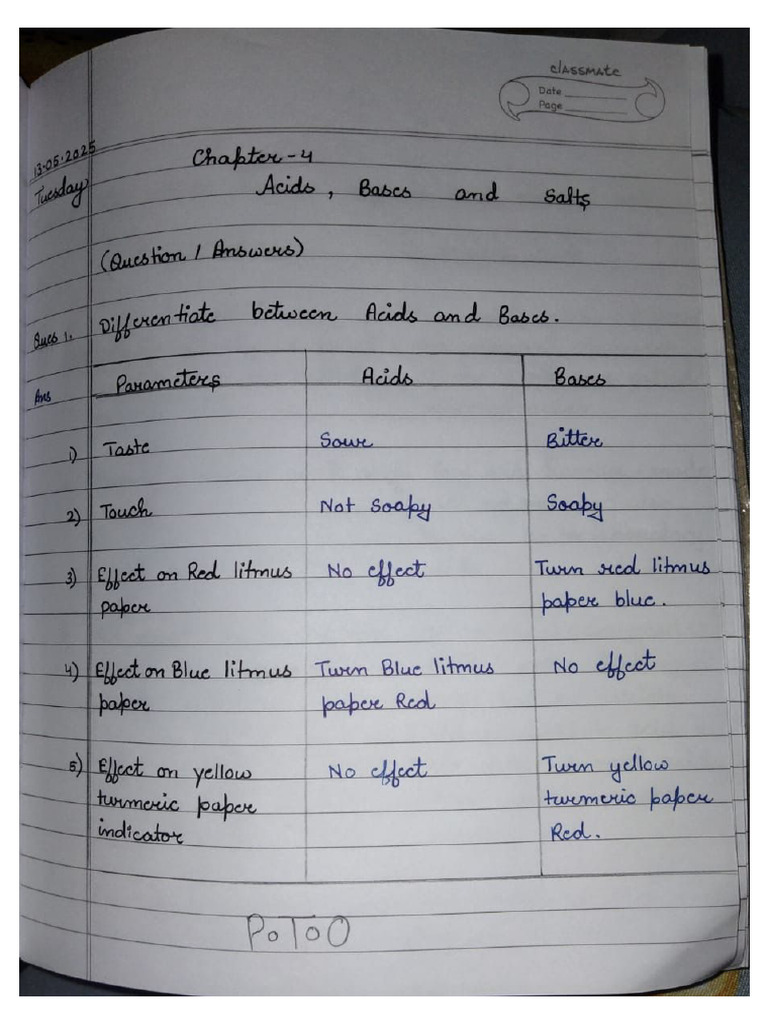 classmate
Date
Page
13.05.2025
Tuesday
Chapter-4
Acids, Bases and Salts
(Question / Answers)
Ques 1. Differentiate between Acids and Bases.
Ans Parameters Acids Bases
1) Taste Sour Bitter
2) Touch Not Soapy Soapy
3) Effect on Red litmus No effect Turn red litmus
paper paper blue.
4) Effect on Blue litmus Turn Blue litmus No effect
paper paper Red
5) Effect on yellow No effect Turn yellow
turmeric paper turmeric paper
indicator Red.
PoToO